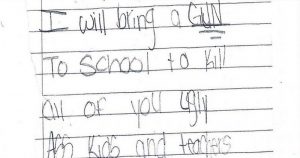 I will bring a GUN
To School to kill
all of you Ugly
Ass kids and teachers